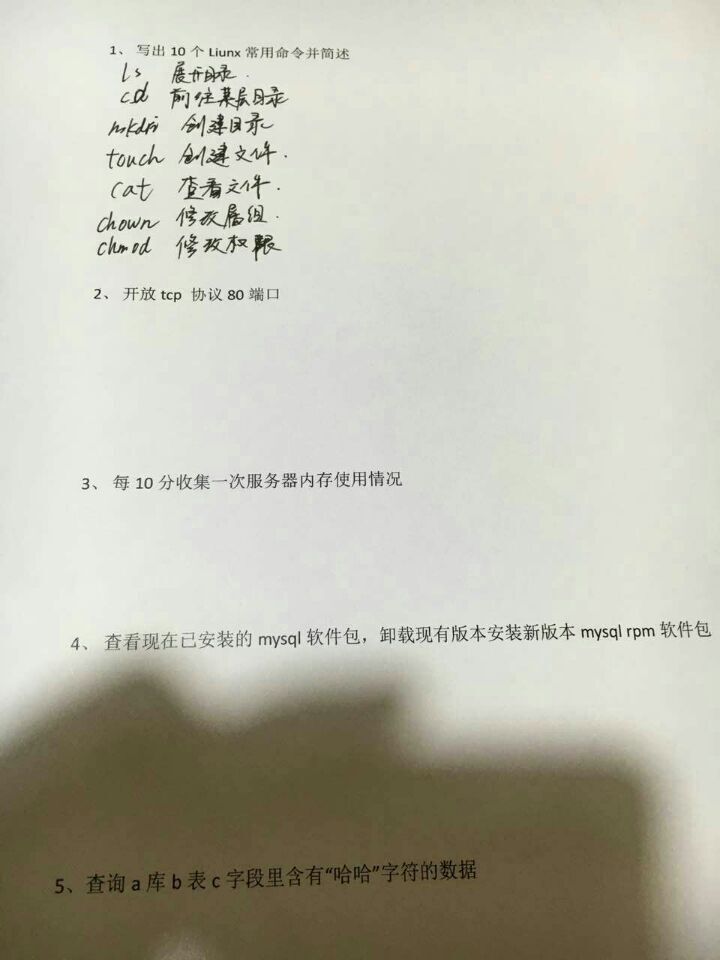 1、 写出 10 个 Liunx 常用命令并简述
ls 展开目录.
cd 前往某层目录
mkdir 创建目录
touch 创建文件.
cat 查看文件.
chown 修改属组.
chmod 修改权限
2、 开放 tcp 协议 80 端口
3、 每 10 分收集一次服务器内存使用情况
4、 查看现在已安装的 mysql 软件包，卸载现有版本安装新版本 mysql rpm 软件包
5、查询 a 库 b 表 c 字段里含有“哈哈”字符的数据